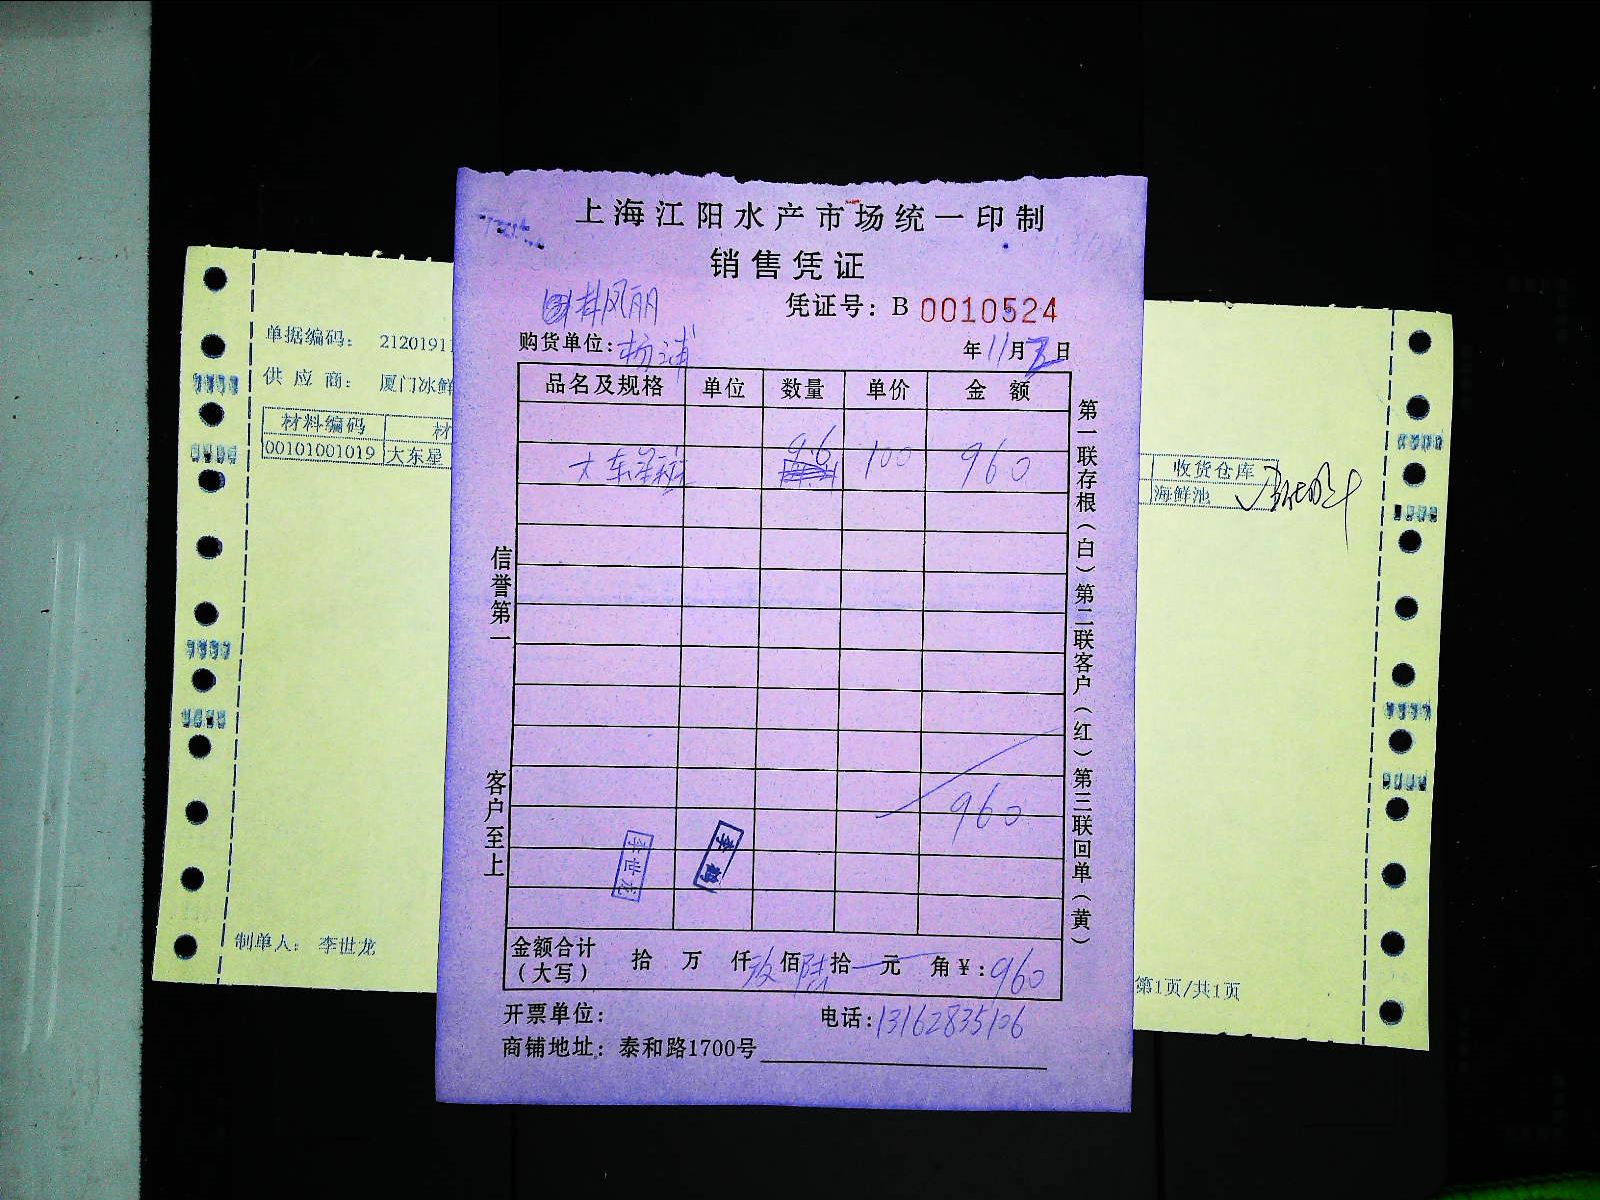 上海江阳水产市场统一印制
销售凭证
凭证号: B 0010524
购货单位: 杨浦
年11月 日
品名及规格 单位 数量 单价 金额
大东星斑 9.6 100 960
960
李世龙
李鹤
金额合计(大写) 拾 万 仟 玖佰 陆拾 元 角 ¥: 960
开票单位:
电话: 13162835126
商铺地址: 泰和路1700号
信誉第一
客户至上
第一联存根(白)第二联客户(红)第三联回单(黄)
单据编码: 2120191
供应商: 厦门冰鲜
材料编码 材
00101001019 大东星
制单人: 李世龙
收货仓库
海鲜池
第1页/共1页